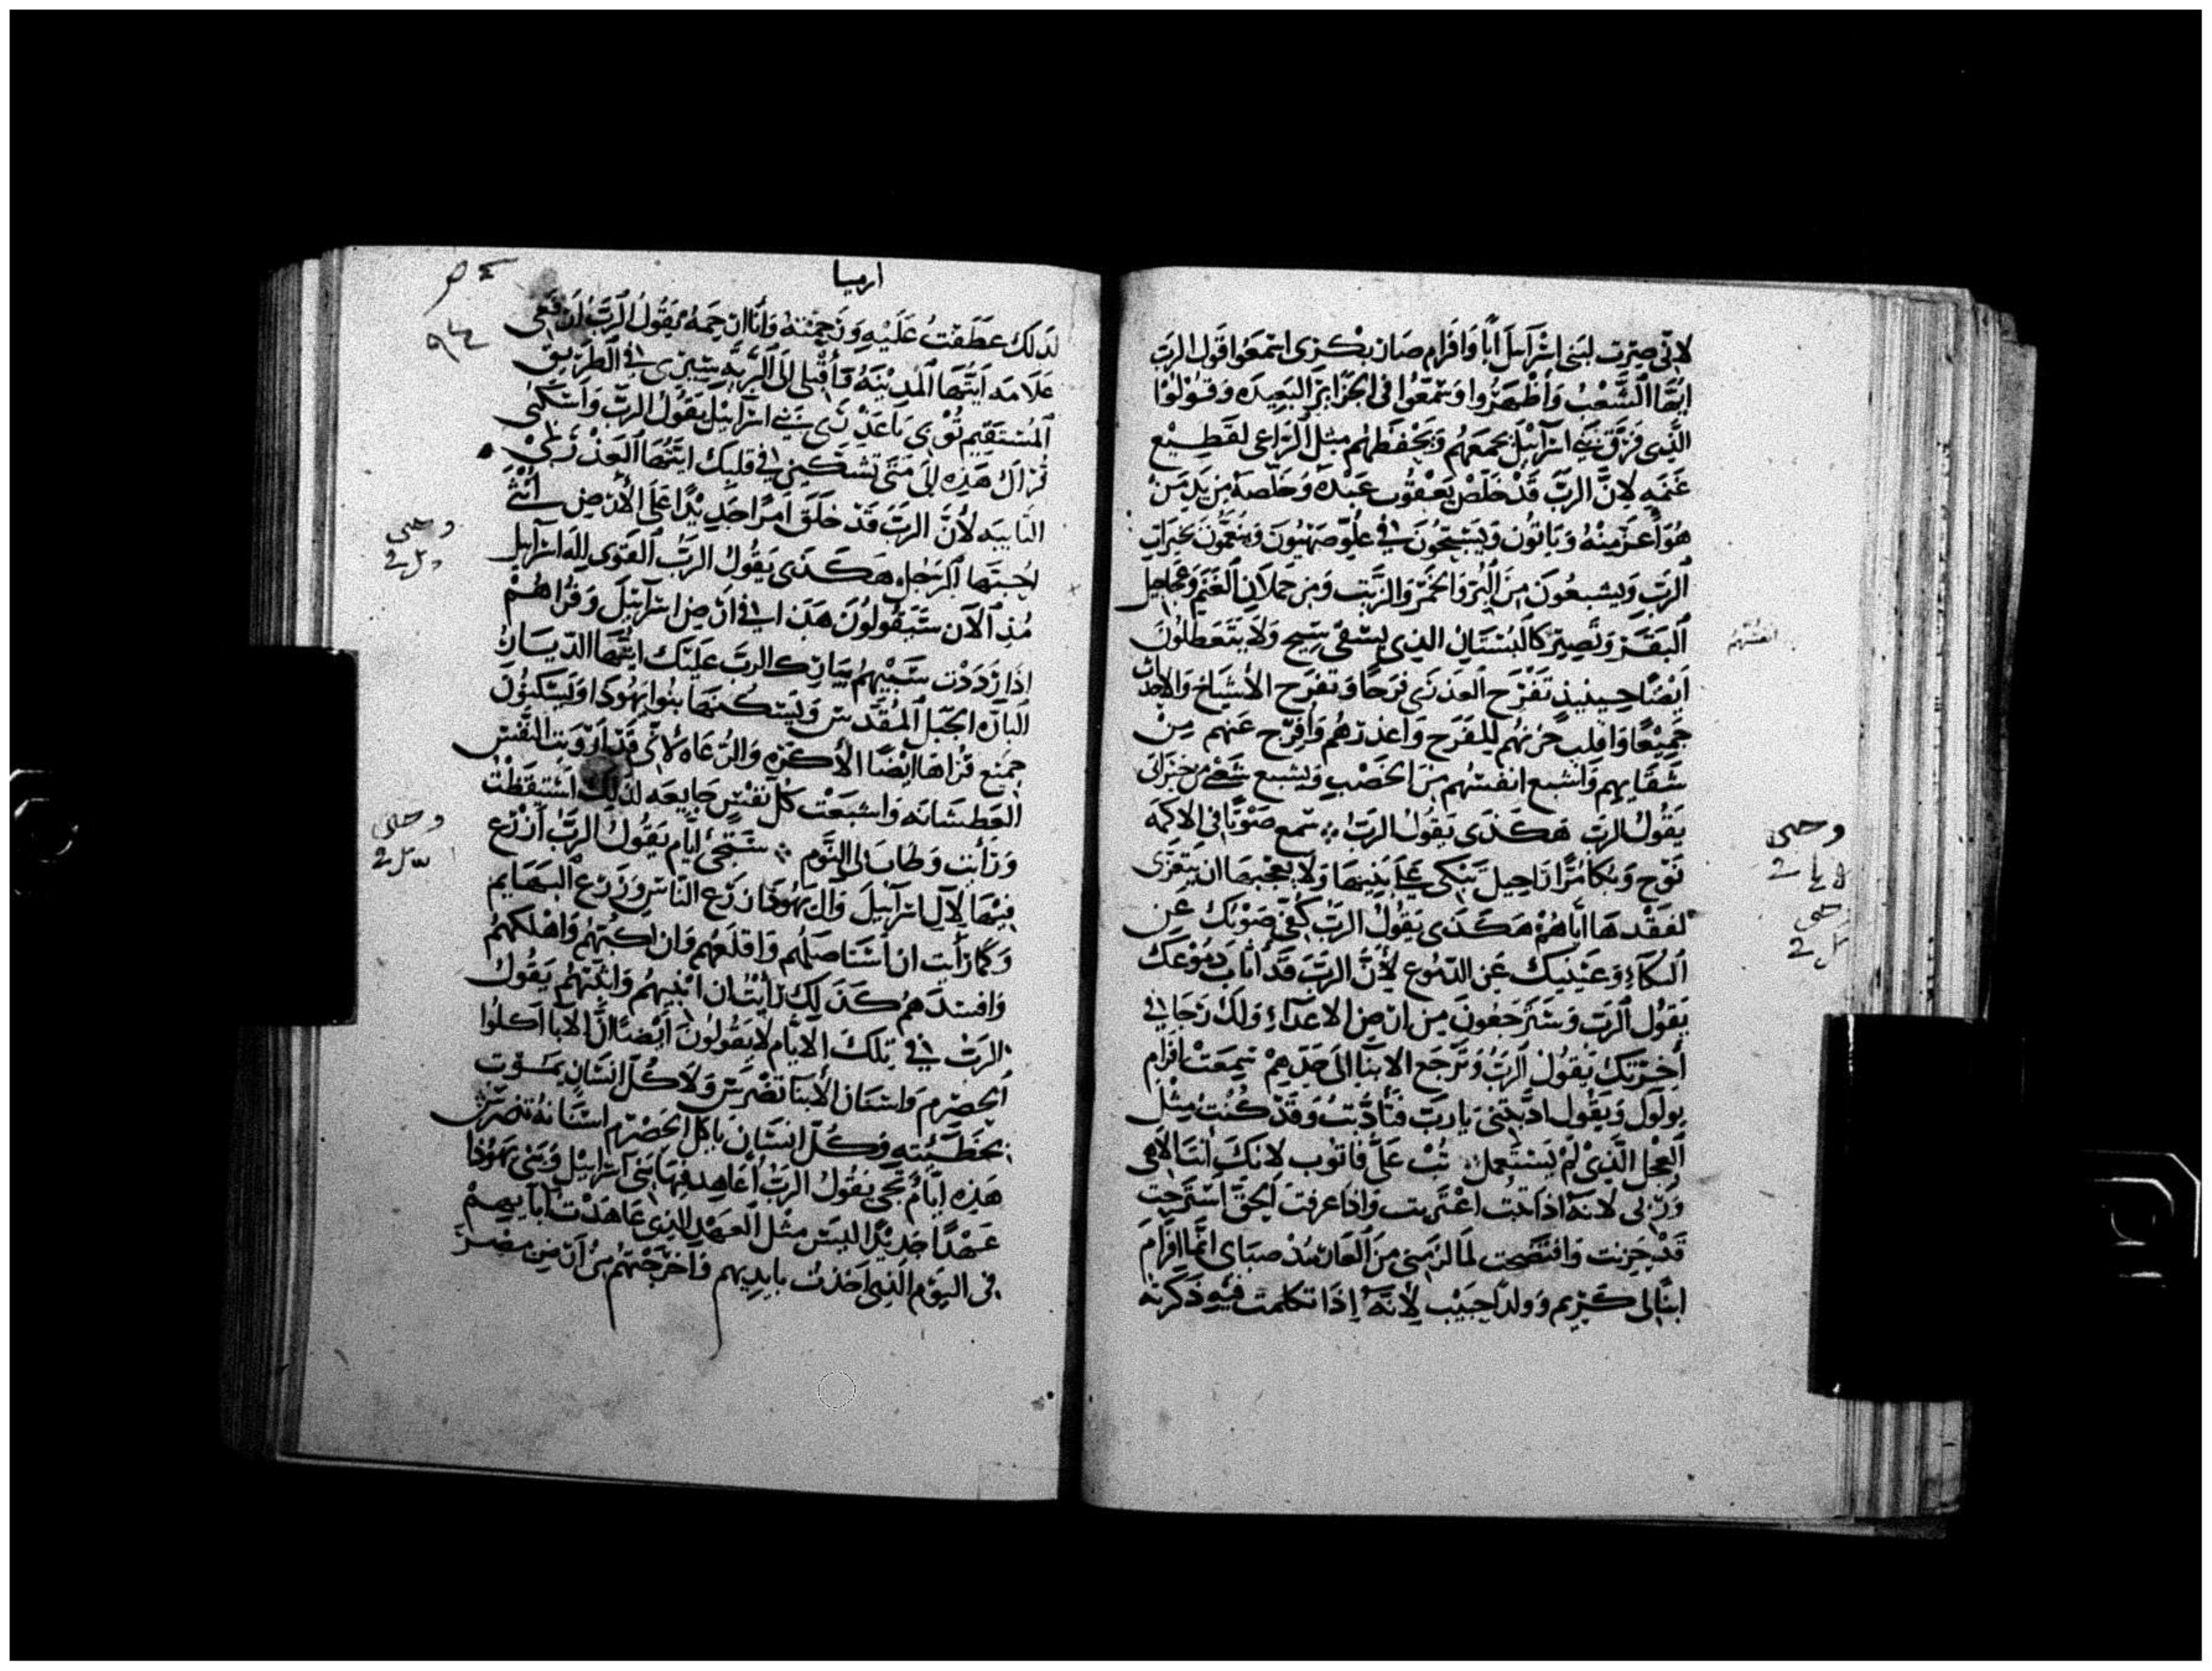 لاني صرت لبني اسرآييل ابًا وَافرام صار بكري اسمعوا قول الرب
ايها الشعب وَاظهروا وسمعوا في الجزاير البعيده وقولوا
الذي فرق بني اسرآييل يجمعهم ويحفظهم مثل الراعي لقطيع
غنمه لان الرب قد خلص يعقوب عبده وخلصه من يد من
هو اعز منه وياتون ويسبحون في علو صهيون وينعمون بخيرات
الرب ويشبعون من البر والخمر والزيت ومن حملان الغنم وعجاجيل
البقر وتصير كالبستان الذي يسقى سيح ولا يتعطلون
ايضًا حينيذ تفرح العذرى فرحًا وتفرح الاشياخ والاحداث
جميعًا واقلب حزنهم للفرح واعذرهم وافرح عنهم من
شقايهم واشبع انفسهم من الخصب ويشبع شعبي من خيراتي
يقول الرب هكذى يقول الرب سمع صوتًا في الاكمه
نوح وبكا مرًا راحيل تبكي على بنيها ولا يعجبها ان يتعزى
لفقدها اياهم هكذى يقول الرب كفي صوتك عن
البكاء وعينيك عن الدموع لأن الرب قد اثاب دموعك
يقول الرب وسترجعون من ارض الاعداء ولك رجا في
اخرتك يقول الرب وترجع الابنا الى حدهم سمعت افرام
يولول ويقول ادبتني يا رب فتأدبت وقد كنت مثل
العجل الذي لم يستعمل تب علي فاتوب لانك انت الاهي
وربي لانه اذا تبت اعتريت واذا عرفت الحق استرحت
قد خزيت وافتضحت لما لزمني من العار منذ صباي انما افرام
ابنًا لي كريم وولدًا حبيب لأنه إذا تكلمت فيه ذكرته
انفسهم
وحى
لا يا 2
وحى
2
ارميا
٩٤
لذلك عطفت عليه ورحمته وانا ارحمه يقول الرب
علامه ايتها المدينه فأقبلي الى البريه سيري في الطريق
المستقيم توبي يا عذرى بني اسرآييل يقول الرب واسكني
قراك هذه إلى متى تشتكيني في قلبك ايتها العذرى
التايبه لأن الرب قد خلق امرًا جديدًا على الأرض انثى
لحبتها الرجل هكذى يقول الرب القوي إله اسرآييل
مُذ الآن ستقولون هذا في ارض اسرآييل وقراهم
اذا رددت سبيهم يبارك الرب عليك ايتها الديار
الباره الجبل المقدس ويسكنها بنوا يهودا وليسكنون
جميع قراها ايضًا الأكره والرعاه لأني قد ارويت النفس
العطشانه واشبعت كل نفس جايعه لذلك استيقظت
ورأيت وطاب لي النوم ستجيء ايام يقول الرب أزرع
فيها لآل اسرآييل وآل يهودا زرع الناس وزرع البهايم
وكما رأيت ان استاصلهم واقلعهم وان اكبهم واهلكهم
وافسدهم كذلك رأيت ان ابنيهم وانميهم يقول
الرب في تلك الايام لا يقولون أيضًا ان الابا اكلوا
الحصرم واسنان الأبنا تضرس ولا كل انسان يموت
بخطيئته وكل انسان ياكل الحصرم اسنانه تضرس
هذه ايام تجي يقول الرب أعاهد فيها بني اسراييل وبني يهوذا
عهدًا جديدًا ليس مثل العهد الذي عاهدت آباييهم
في اليوم الذي اخذت بايديهم فاخرجتهم من ارض مصر
وحى
2
وحى
2